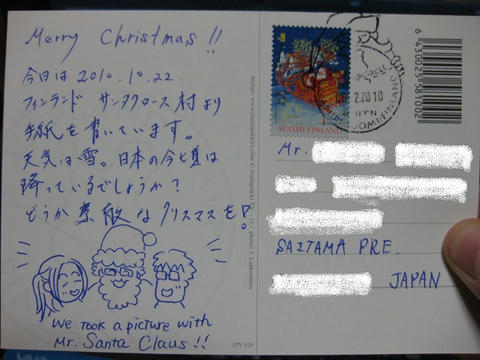 Merry Christmas!!
今日は2010.10.22.
フィンランド サンタクロース村より
手紙を書いています。
天気は雪。日本の今頃は
降っているでしょうか?
どうか素敵なクリスマスを!!
We took a picture with
Mr. Santa Claus!!
SUOMI FINLAND
2.2010
Mr.
SAITAMA PRE.
JAPAN
6430025981002